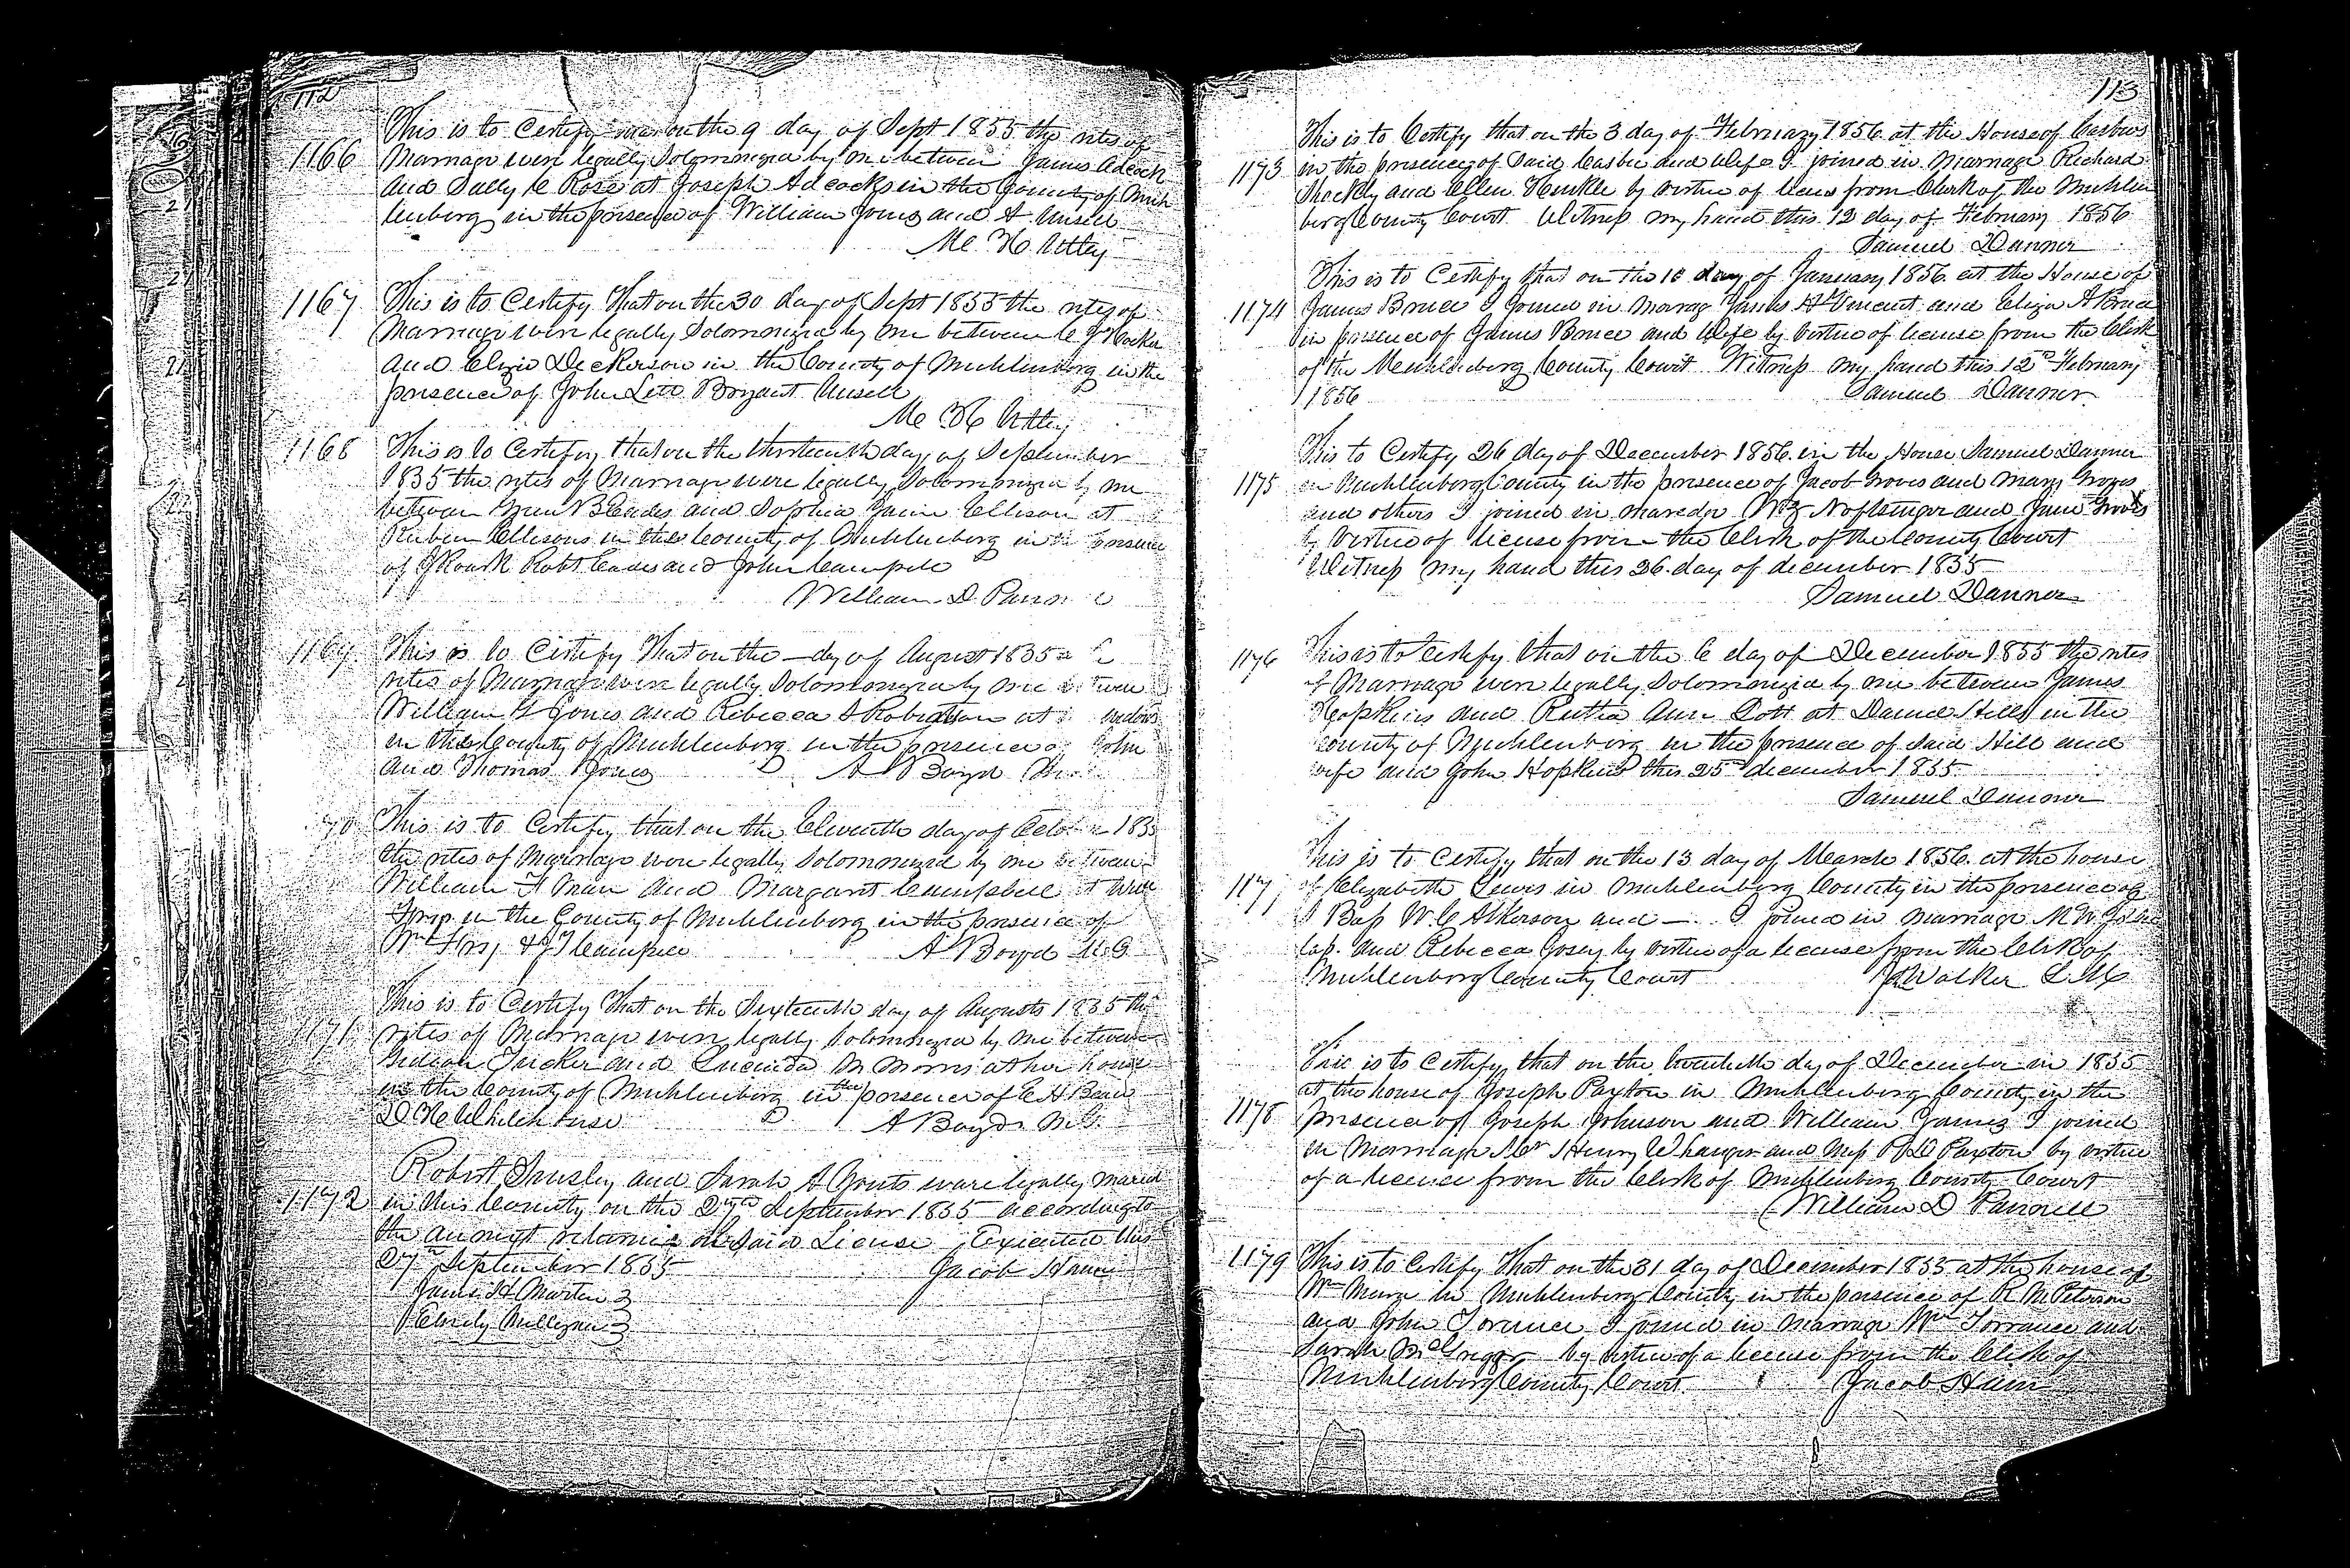 112
This is to Certify that on the 9 day of Sept 1855 the rites of
1166 Marriage were legally Solomnized by me between James Adcock
and Sally C Rose at Joseph Adcocks in the County of Muh
lenberg in the presence of William Jones and A Unsell
Mc H Utley
1167 This is to Certify That on the 30 day of Sept 1855 the rites of
Marriage were legally Solomnized by me between C J Hocker
and Dickerson in the County of Muhlenberg in the
presence of John Bryant Unsell
Mc H Utley
1168 This is to Certify that on the thirteenth day of September
1855 the rites of Marriage were legally Solomnized by me
between and Sophia Jane Ellison at
Reuben Ellisons in this County of Muhlenberg in the presence
of J Roark Robt Eades and John Campbell
William D Pannell
1169 This is to Certify That on the — day of August 1855
rites of Marriage were legally Solomonized by me between
William G Jones and Rebecca S Robertson at
in this County of Muhlenberg in the presence of John
and Thomas Jones A Boyd
70 This is to Certify that on the Eleventh day of 1855
the rites of Marriage were legally Solomonized by me between
William F Man and Margaret Campbell at
in the County of Muhlenberg in the presence of
Wm & J T Campbell A Boyd M.G
This is to Certify That on the Sixteenth day of Augusts 1855 the
1171 rites of Marriage were legally Solomnized by me between
Gideon Tucker and Lucinda M Morris at her house
in the County of Muhlenberg in the presence of E H
D H Whitehouse A Boyd M.G.
Robert and Sarah A were legally maried
1172 in this County on the 27th September 1855 according to
the License Executed this
27th September 1855 Jacob Haun
James H Martin
113
This is to Certify that on the 3 day of February 1856 at the House of
1173 in the presency of Said and Wife I joined in Marriage Richard
Shockly and Ellen Henkle by virtue of licens from Clerk of the Muhlen
berg County Court Witness my hand this 12 day of February 1856
Samuel Danner
This is to Certify that on the 10 day of January 1856 at the House of
1174 James Bruce I joined in Marrag James H Vincent and Eliza A Bruce
in presence of James Bruce and Wife by virtue of license from the Clerk
of the Muhlenberg County Court Witness my hand this 12th February
1856 Samuel Danner
This to Certify 26 day of December 1856 in the House Samuel Danner
1175 in Muhlenberg County in the presence of Jacob Groves and Mary Groves
and others I joined in Noffsinger and Jane Groves
by Virtue of license from the Clerk of the County Court
Witness my hand this 26 day of december 1855
Samuel Danner
1176 This is to Certify that on the 6 day of December 1855 the rites
of Marriage were legally Solomonized by me between James
Hopkins and Rutha Ann Dott at Daniel Hills in the
county of Muhlenberg in the presence of Said Hill and
wife and John Hopkins this 25th december 1855
Samuel Danner
This is to Certify that on the 13 day of March 1856 at the house
1177 of Elizabeth Lewis in Muhlenberg County in the presence of
Bass W C Atkerson and — I joined in marriage M W
and Rebecca Josey by virtue of a license from the Clerk of
Muhlenberg County Court J Walker
This is to Certify that on the twentieth day of December in 1855
at the house of Joseph Paxton in Muhlenberg County in the
1178 presence of Joseph Johnson and William James I joined
in Marriage Mr Henry Whanger and Miss Paxton by virtue
of a license from the Clerk of Muhlenberg County Court
William D Pannell
1179 This is to Certify That on the 31 day of December 1855 at the house of
Wm in Muhlenberg County in the presence of R M Peterson
and John Torrence I joined in Marriage Wm Torrance and
Sarah McGregor by virtue of a license from the Clerk of
Muhlenberg County Court Jacob Haun